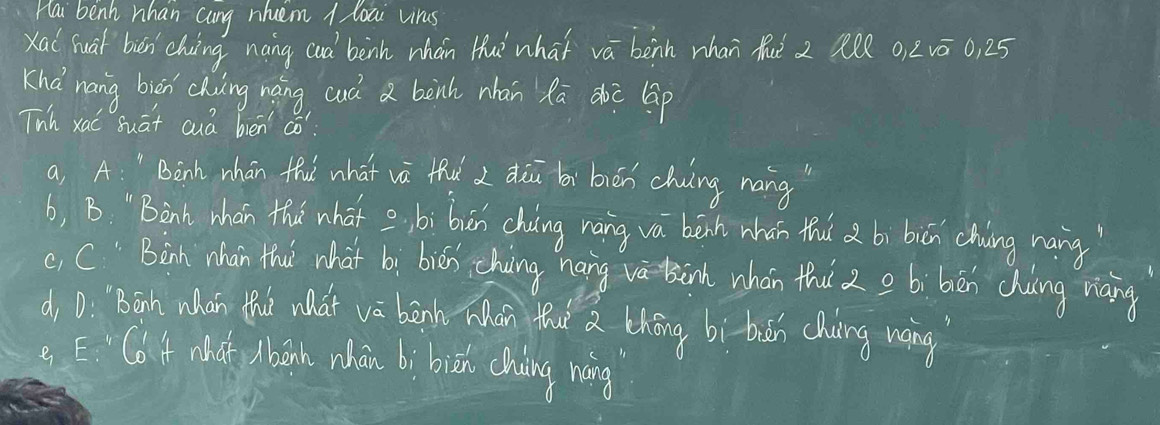 Hai bệnh nhân cùng nhiễm 1 loại virus
Xác suất biến chứng nặng của bệnh nhân thứ nhất và bệnh nhân thứ 2 lll 0,2 và 0,25
Khả năng biến chứng nặng của 2 bệnh nhân là độc lập
Tính xác suất của biến cố:
a, A: "Bệnh nhân thứ nhất và thứ 2 đều bị biến chứng nặng"
b, B: "Bệnh nhân thứ nhất o bị biến chứng nặng và bệnh nhân thứ 2 bị biến chứng nặng"
c, C: "Bệnh nhân thứ nhất bị biến chứng nặng và bệnh nhân thứ 2 o bị biến chứng nặng"
d, D: "Bệnh nhân thứ nhất và bệnh nhân thứ 2 không bị biến chứng nặng"
e, E: "Có ít nhất 1 bệnh nhân bị biến chứng nặng"